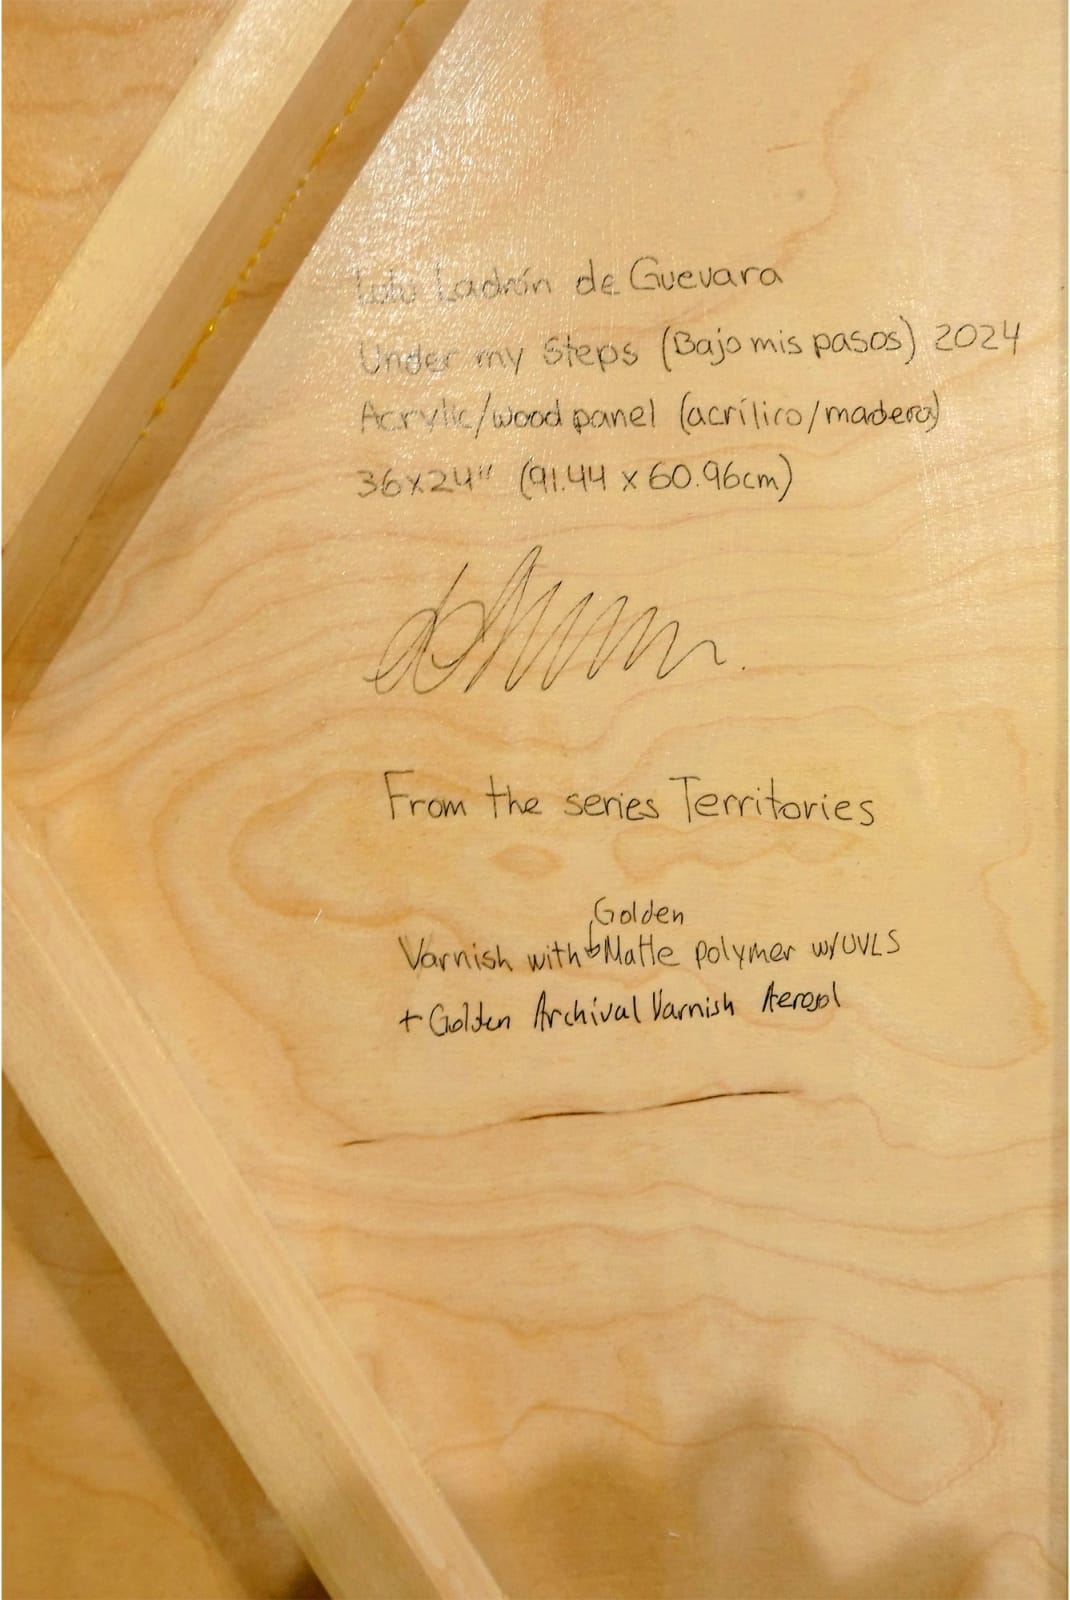 Lulú Ladrón de Guevara
Under my Steps (Bajo mis pasos) 2024
Acrylic/wood panel (acrílico/madera)
36x24" (91.44 x 60.96cm)
From the series Territories
Golden
Varnish with Matte polymer w/UVLS
+ Golden Archival Varnish Aerosol